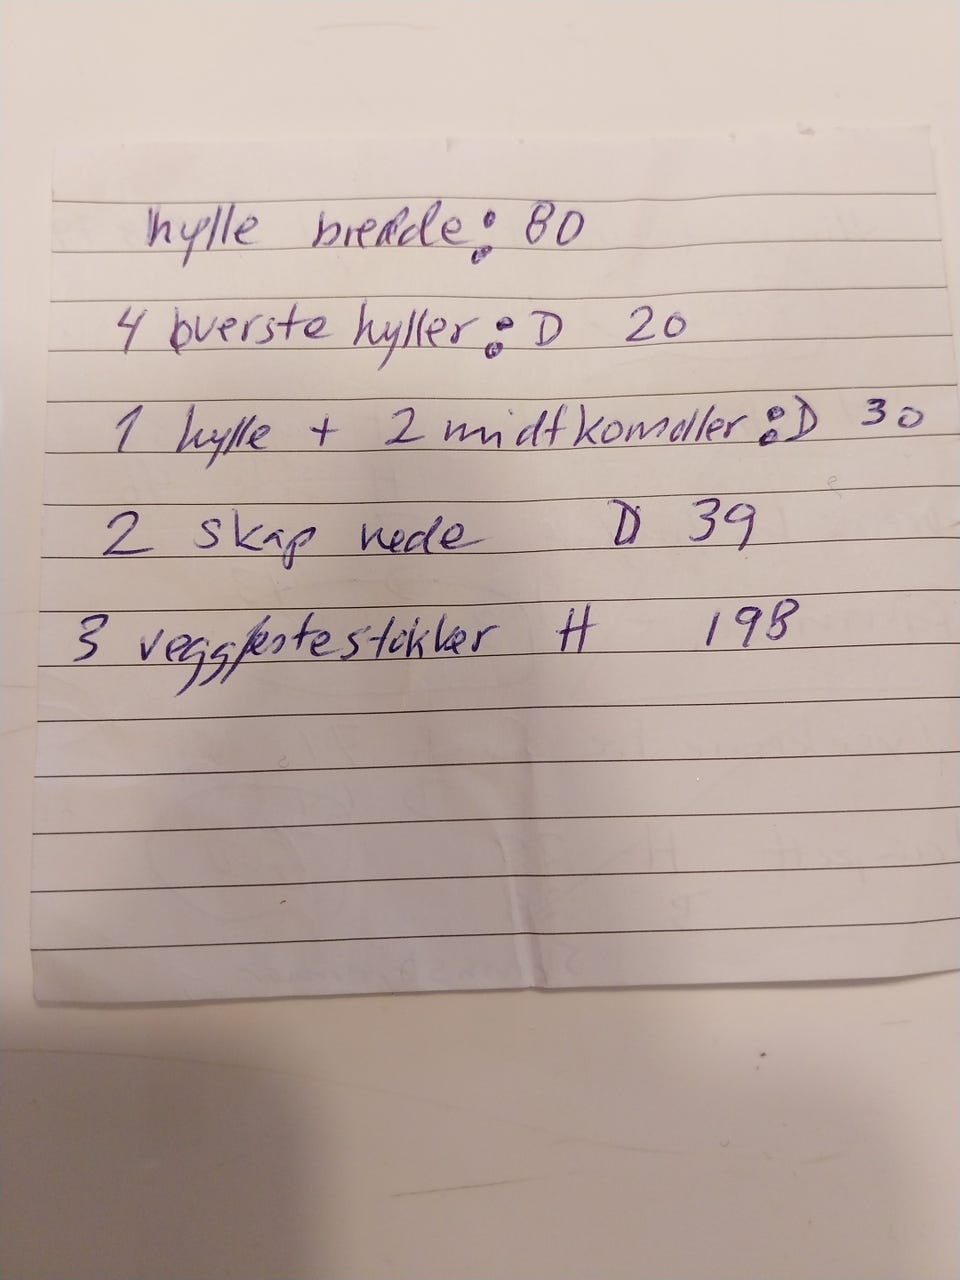 hylle bredde: 80
4 øverste hyller: D 20
1 hylle + 2 midtkomøller: D 30
2 skap nede D 39
3 veggfestestokker H 198